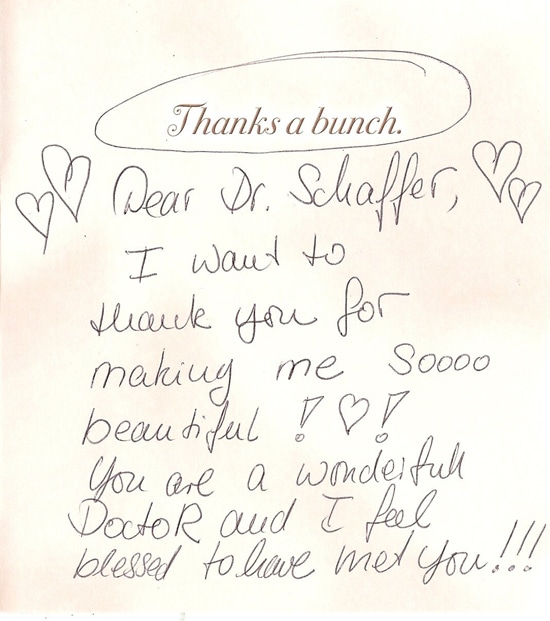 Thanks a bunch.
Dear Dr. Schaffer,
I want to
thank you for
making me Soooo
beautiful !♡!
You are a wonderfull
Doctor and I feel
blessed to have met you!!!